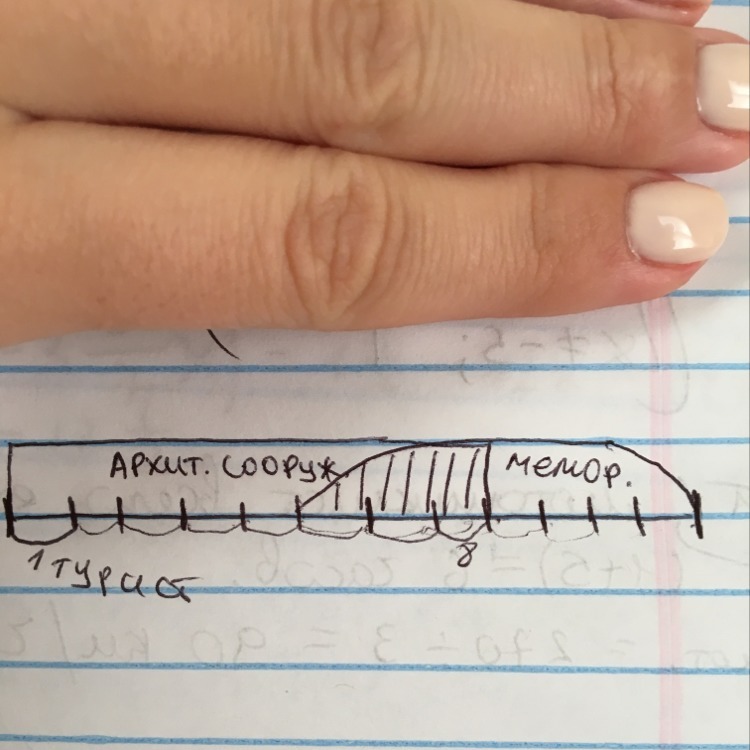 АРХИТ. СООРУЖ. МЕМОР.
8
1 ТУРИСТ